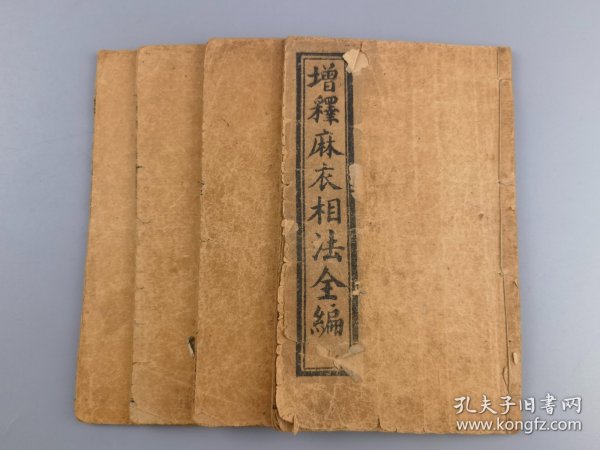 增釋麻衣相法全編
孔夫子旧书网
www.kongfz.com